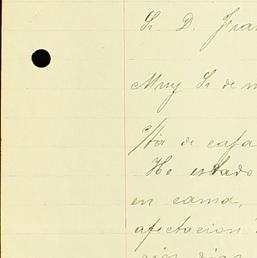 Sr. D. Fran
Muy Sr. de m
de cafa
He estado
en cama,
afectacion
dias